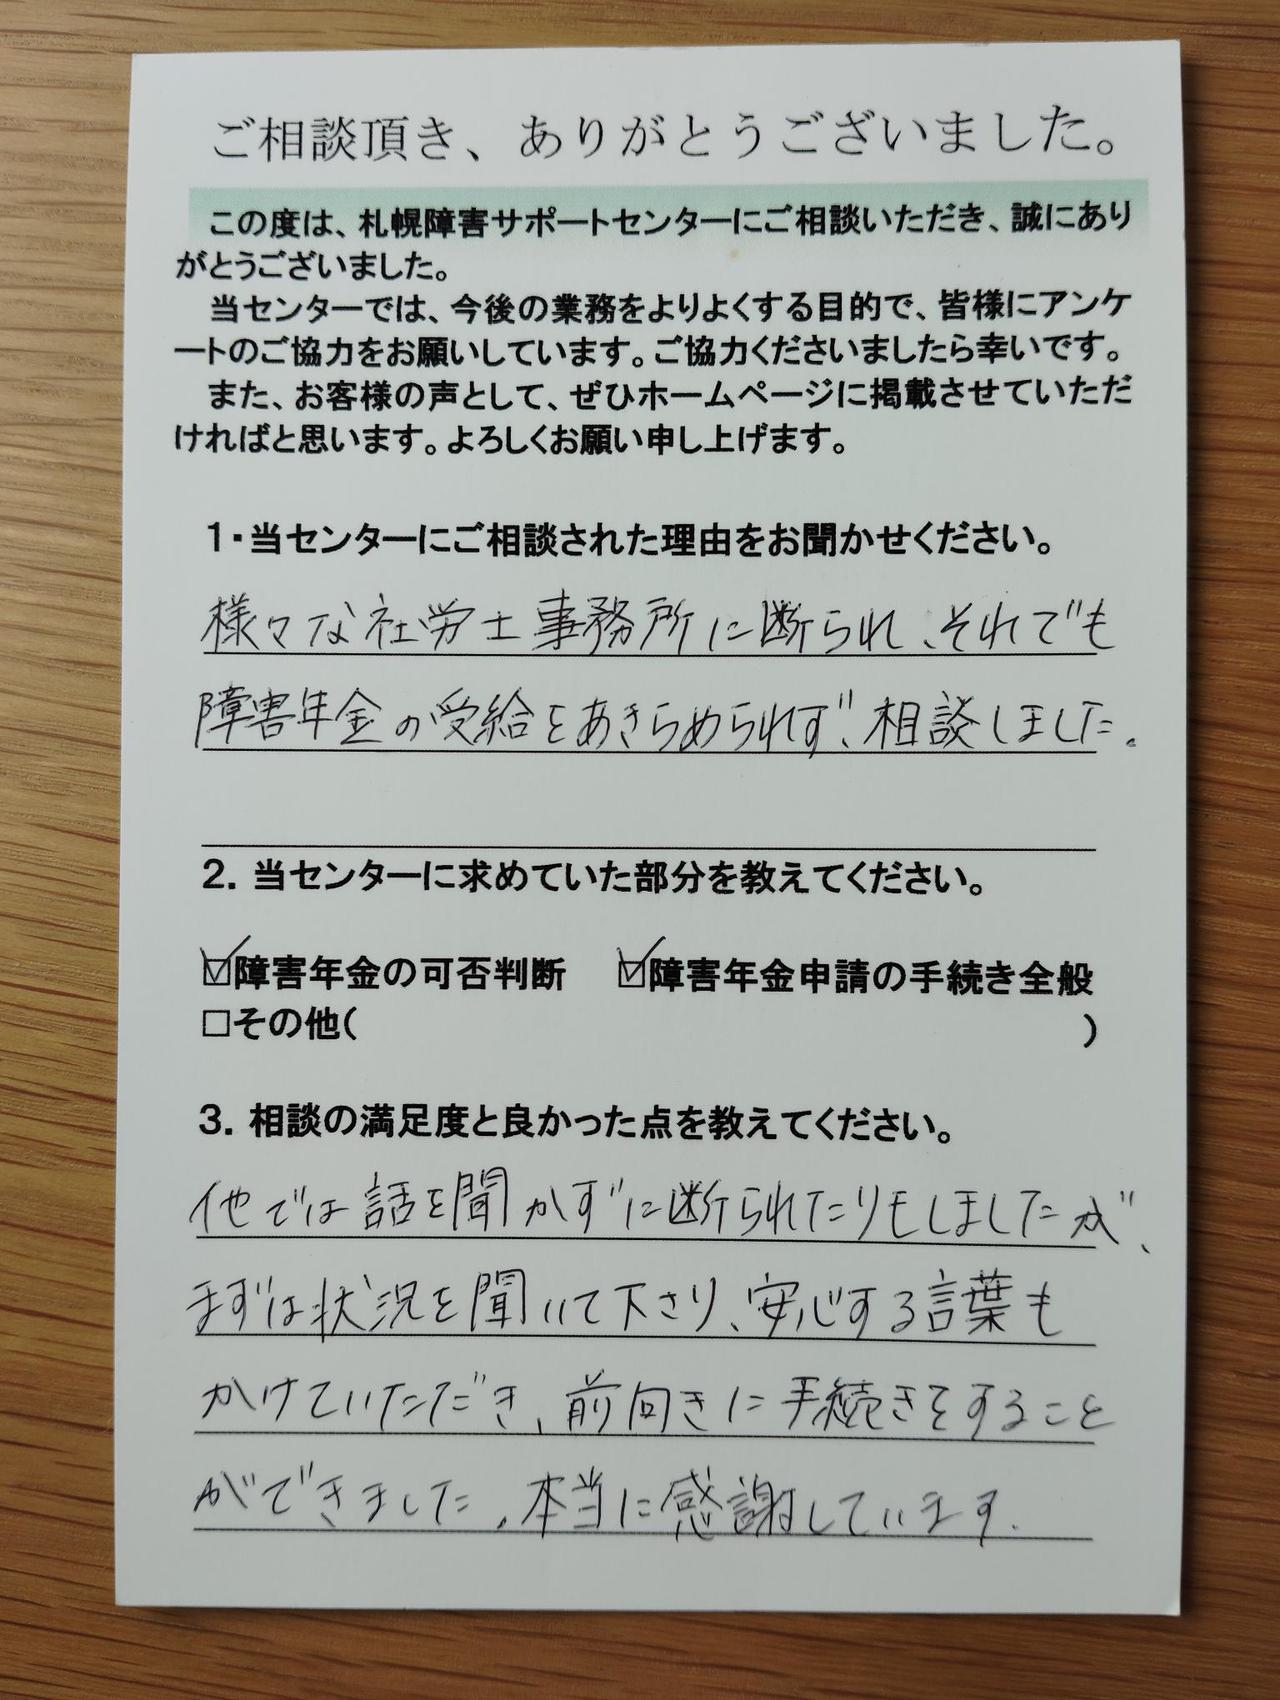 ご相談頂き、ありがとうございました。
この度は、札幌障害サポートセンターにご相談いただき、誠にあり
がとうございました。
当センターでは、今後の業務をよりよくする目的で、皆様にアンケ
ートのご協力をお願いしています。ご協力くださいましたら幸いです。
また、お客様の声として、ぜひホームページに掲載させていただ
ければと思います。よろしくお願い申し上げます。
1・当センターにご相談された理由をお聞かせください。
様々な社労士事務所に断られ、それでも
障害年金の受給をあきらめられず、相談しました。
2．当センターに求めていた部分を教えてください。
☑障害年金の可否判断 ☑障害年金申請の手続き全般
□その他( )
3．相談の満足度と良かった点を教えてください。
他では話を聞かずに断られたりもしましたが、
まずは状況を聞いて下さり、安心する言葉も
かけていただき、前向きに手続きをすること
ができました。本当に感謝しています。